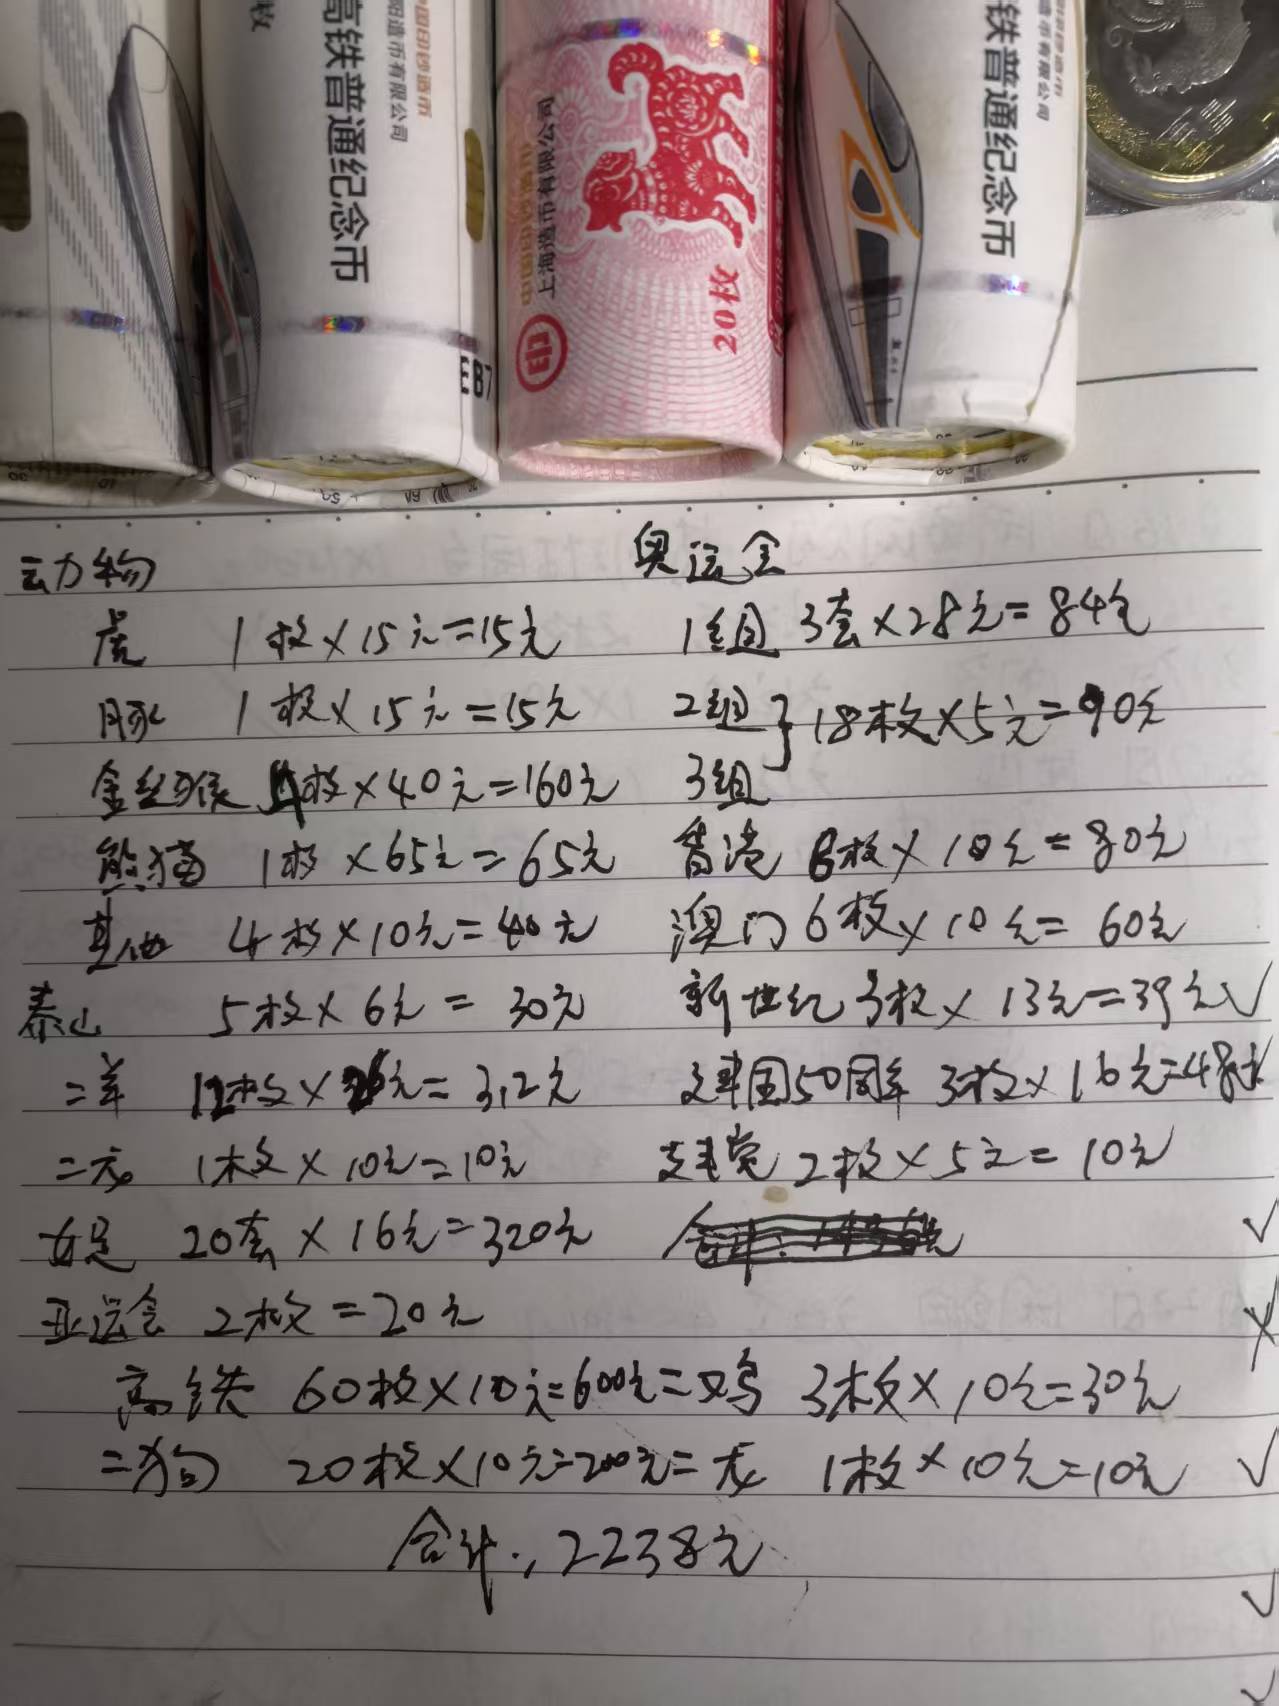 高铁普通纪念币
中国印钞造币
阳造币有限公司
枚
EB7
上海造币有限公司
20枚
铁普通纪念币
造币有限公司
动物
虎 1枚×15元=15元
豚 1枚×15元=15元
金丝猴 4枚×40元=160元
熊猫 1枚×65元=65元
其他 4枚×10元=40元
泰山 5枚×6元=30元
二羊 12枚×26元=312元
二龙 1枚×10元=10元
女足 20套×16元=320元
亚运会 2枚=20元
奥运会
1组 3套×28元=84元
2组}18枚×5元=90元
3组
香港 8枚×10元=80元
澳门 6枚×10元=60元
新世纪 3枚×13元=39元✓
建国50周年 3枚×16元=48元
建党 2枚×5元=10元
高铁 60枚×10元=600元=鸡 3枚×10元=30元
二狗 20枚×10元=200元=龙 1枚×10元=10元
合计:2238元